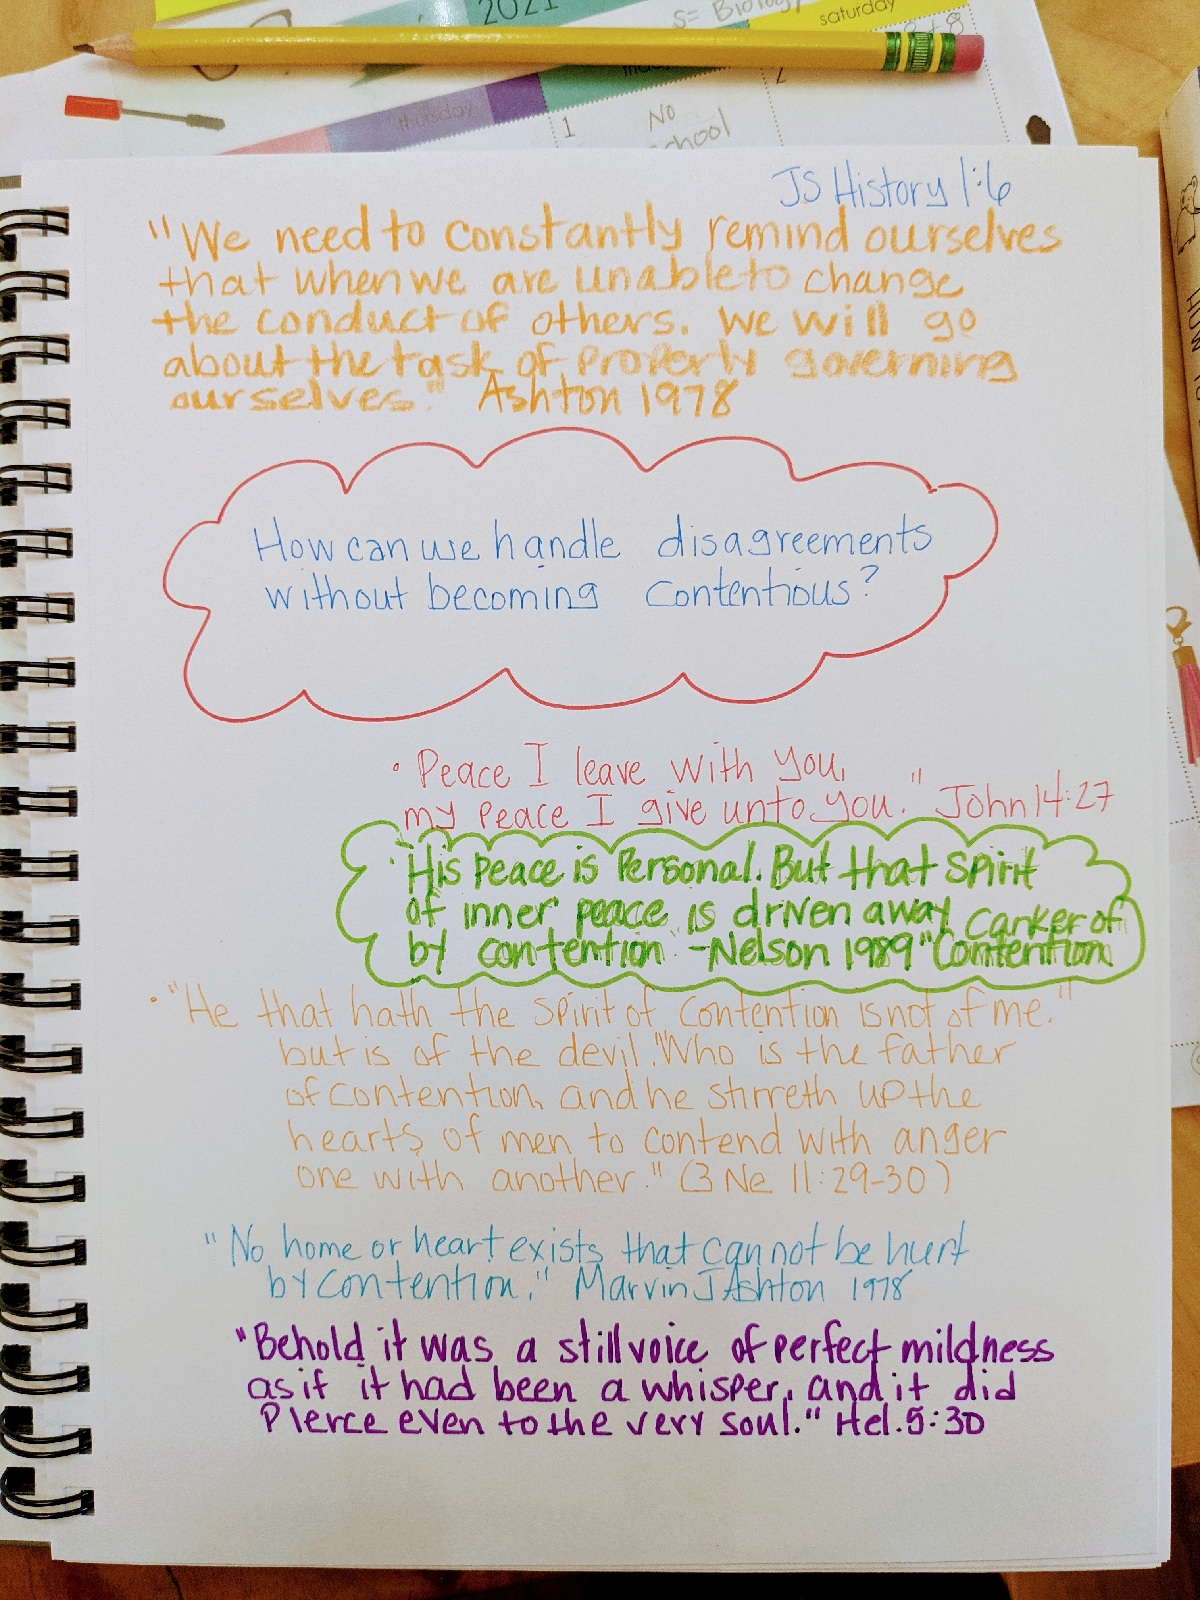 2021
S= Biology
saturday
thursday
1
No
school
2
JS History 1:6
"We need to constantly remind ourselves
that when we are unable to change
the conduct of others. We will go
about the task of properly governing
ourselves." Ashton 1978
How can we handle disagreements
without becoming contentious?
• Peace I leave with you,
my peace I give unto you." John 14:27
• His peace is Personal. But that spirit
of inner peace is driven away
by contention -Nelson 1989 "Canker of
Contention
• "He that hath the spirit of contention is not of me."
but is of the devil. "Who is the father
of contention, and he stirreth up the
hearts of men to contend with anger
one with another." (3 Ne 11:29-30)
"No home or heart exists that cannot be hurt
by contention." Marvin J Ashton 1978
"Behold it was a still voice of perfect mildness
as if it had been a whisper, and it did
Pierce even to the very soul." Hel. 5:30